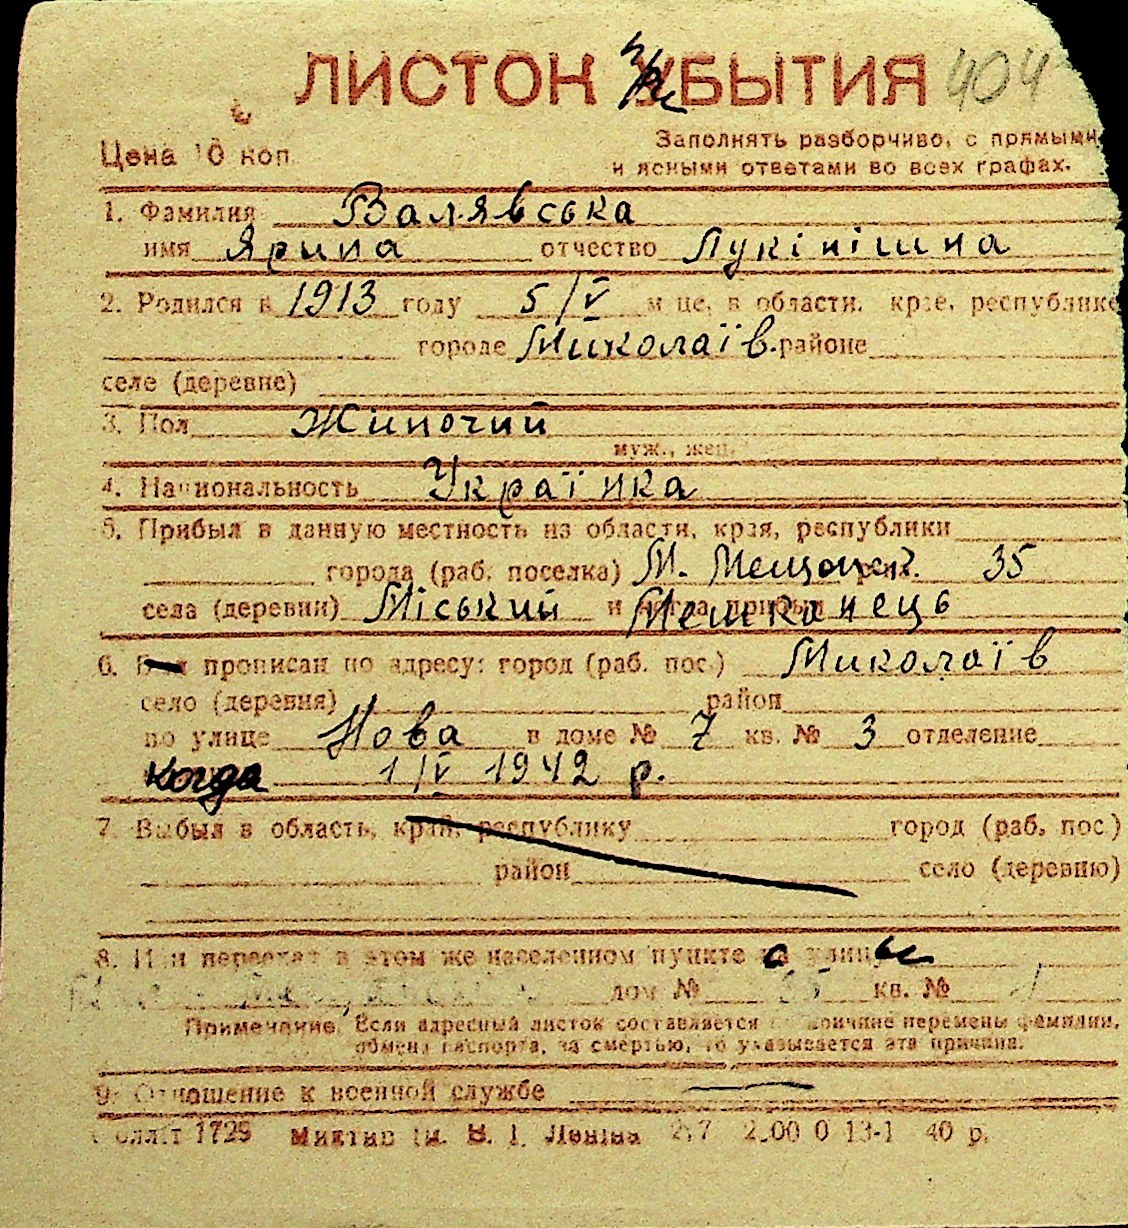 ЛИСТОК УБЫТИЯ 404
Цена 10 коп
Заполнять разборчиво, с прямыми
и ясными ответами во всех графах.
1. Фамилия Валявська
имя Ярина отчество Лукінішна
2. Родился в 1913 году 5/V м-це, в области, крае, республике
городе Миколаїв. районе
селе (деревне)
3. Пол Жиночий
муж., жен.
4. Национальность Українка
5. Прибыл в данную местность из области, края, республики
города (раб. поселка) М. 35
села (деревни) Міський Мешканець
6. прописан по адресу: город (раб. пос.) Миколаїв
село (деревня) район
по улице Нова в доме № 7 кв. № 3 отделение
когда 1/V 1942 р.
7. Выбыл в область, край, республику город (раб. пос.)
район село (деревню)
8. Или переехал в этом же населенном пункте с улицы
дом № кв. №
Примечание. Если адресный листок составляется по причине перемены фамилии,
обмена паспорта, за смертью, то указывается эта причина.
9. Отношение к военной службе
1729 В. І. Леніна 2.00 0 13-1 40 р.